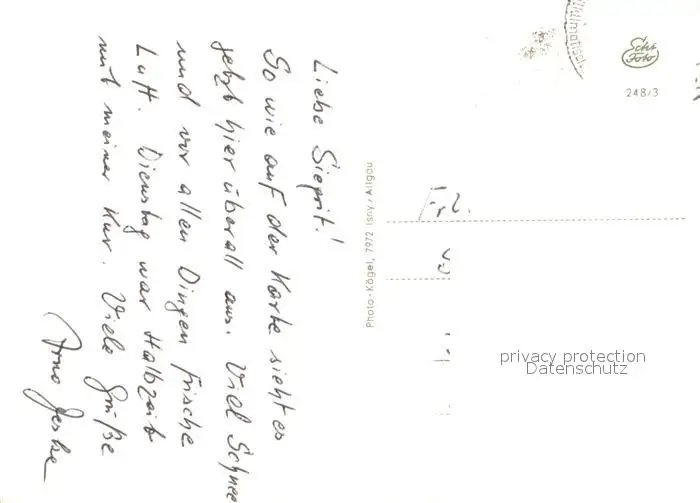 Liebe Siegrit!
So wie auf der Karte sieht es
jetzt hier überall aus. Viel Schnee
und vor allen Dingen frische
Luft. Dienstag war Halbzeit
mit meiner Kur. Viele Grüße
Arno
Photo-Kögel, 7972 Isny/Allgäu
Schö
Foto
248/3
Frl.
privacy protection
Datenschutz